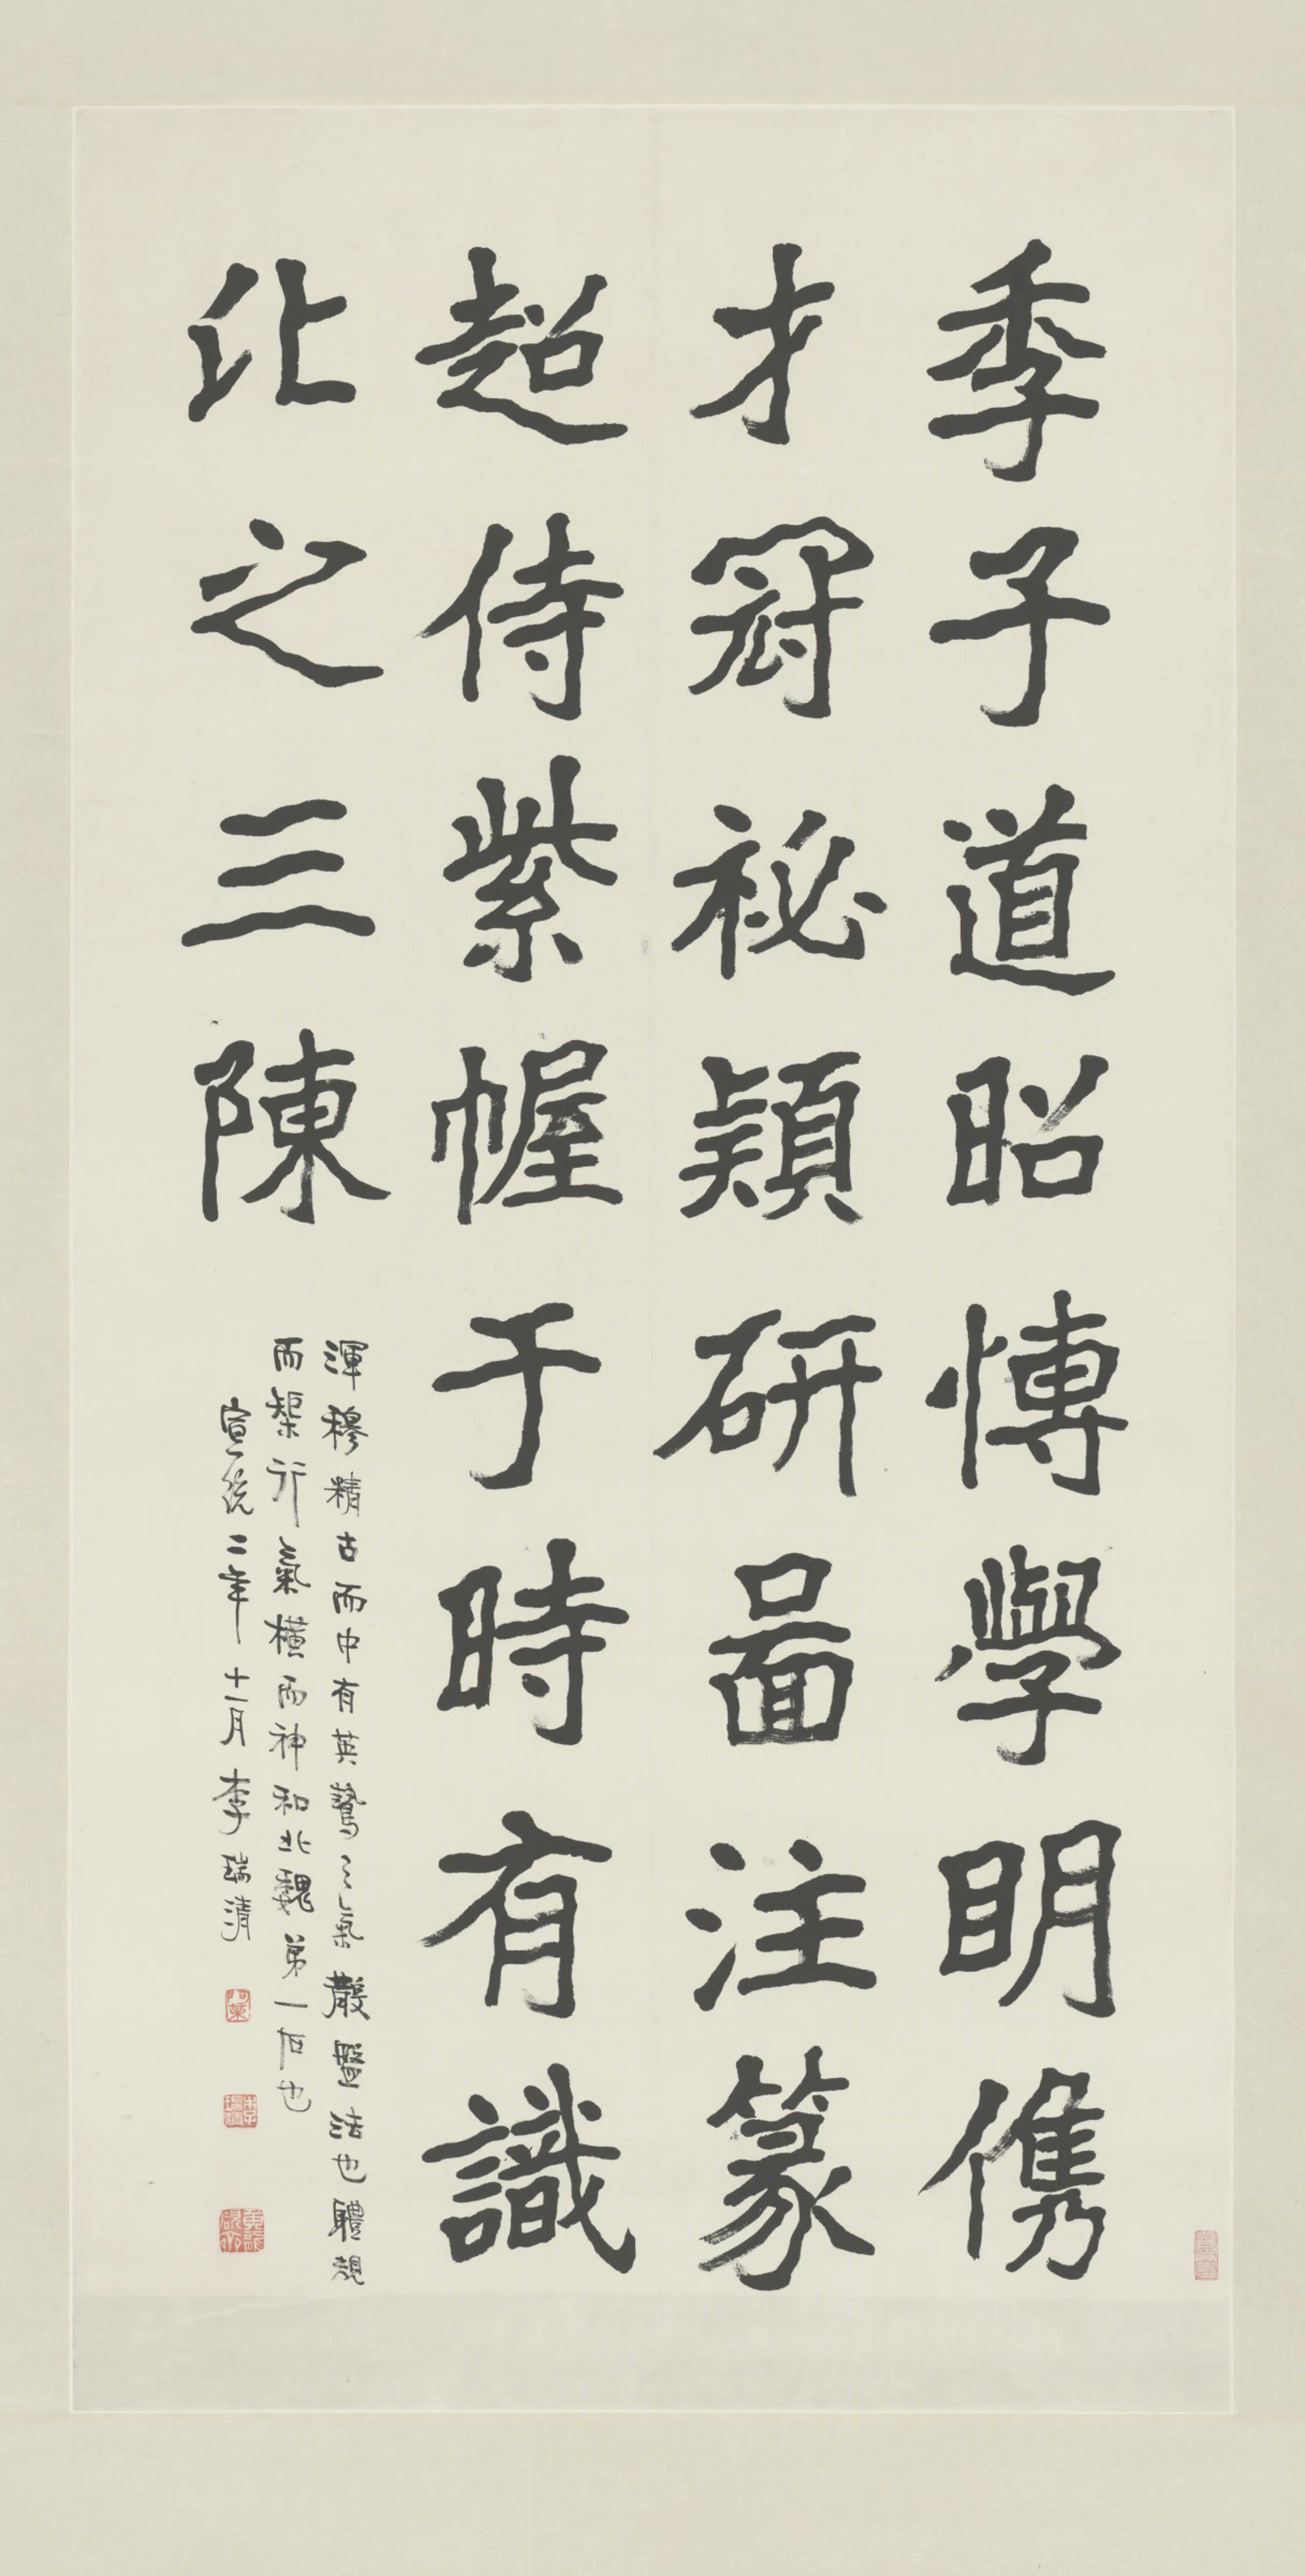 季子道昭博學明儁
才冠祕穎研啚注篆
超侍紫幄于時有識
比之三陳
渾穆精古而中有英鷙之氣散盤法也體規
而架行氣橫而神和北魏弟一石也
宣統二年十一月李瑞清